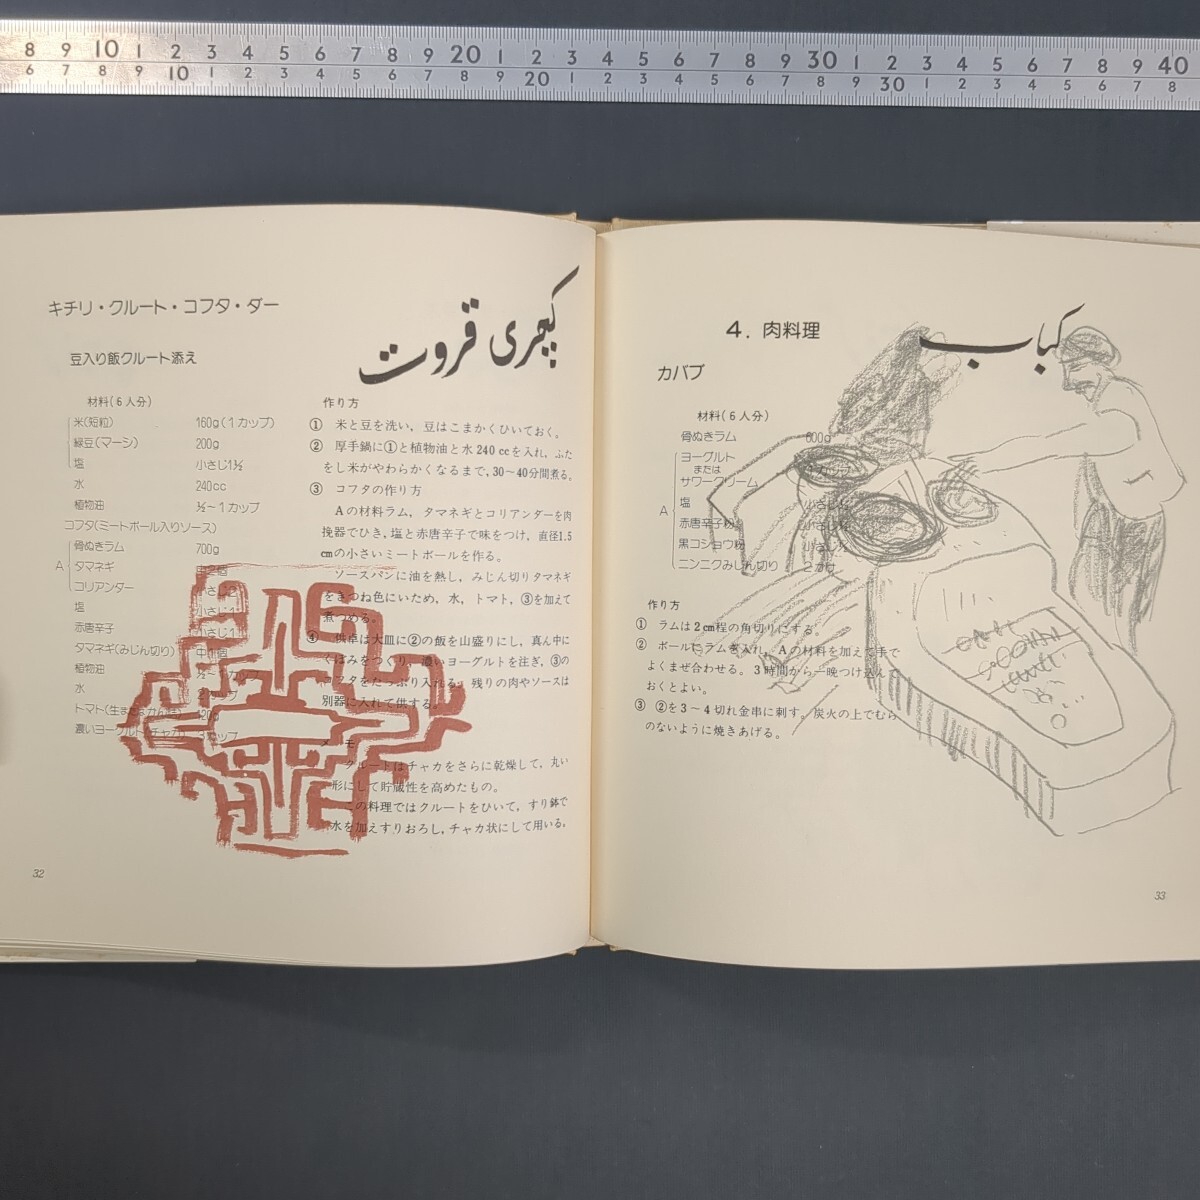 8 9 10 1 2 3 4 5 6 7 8 9 20 1 2 3 4 5 6 7 8 9 30 1 2 3 4 5 6 7 8 9 40
6 7 8 9 10 1 2 3 4 5 6 7 8 9 20 1 2 3 4 5 6 7 8 9 30 1 2 3 4 5 6 7 8
キチリ・クルート・コフタ・ダー
کچری قروت
豆入り飯クルート添え
材料(6人分)
米(短粒) 160g(1カップ)
緑豆(マーシ) 200g
塩 小さじ1½
水 240cc
植物油 ～1カップ
コフタ(ミートボール入りソース)
A
骨ぬきラム 700g
タマネギ
コリアンダー 小さじ2
塩 小さじ1
赤唐辛子 小さじ1
タマネギ(みじん切り) 中1個
植物油 カップ
水 カップ
トマト(生またはかん詰) 420g
濃いヨーグルト(チャカ) 3カップ
作り方
① 米と豆を洗い，豆はこまかくひいておく。
② 厚手鍋に①と植物油と水240ccを入れ，ふた
をし米がやわらかくなるまで，30～40分間煮る。
③ コフタの作り方
Aの材料ラム，タマネギとコリアンダーを肉
挽器でひき，塩と赤唐辛子で味をつけ，直径1.5
cmの小さいミートボールを作る。
ソースパンに油を熱し，みじん切りタマネギ
をきつね色にいため，水，トマト，③を加えて
煮つめる。
④ 供卓は大皿に②の飯を山盛りにし，真ん中に
くぼみをつくり，濃いヨーグルトを注ぎ，③の
コフタをたっぷり入れる。残りの肉やソースは
別器に入れて供する。
メモ
クルートはチャカをさらに乾燥して，丸い
形にして貯蔵性を高めたもの。
この料理ではクルートをひいて，すり鉢で
水を加えすりおろし，チャカ状にして用いる。
32
4. 肉料理
کباب
カバブ
材料(6人分)
骨ぬきラム 600g
A
ヨーグルト
または
サワークリーム
塩 小さじ
赤唐辛子粉 小さじ
黒コショウ粉 小さじ
ニンニクみじん切り 2かけ
作り方
① ラムは2cm程の角切りにする。
② ボールにラムを入れ，Aの材料を加えて手で
よくまぜ合わせる。3時間から一晩つけ込んで
おくとよい。
③ ②を3～4切れ金串に刺す。炭火の上でむら
のないように焼きあげる。
33